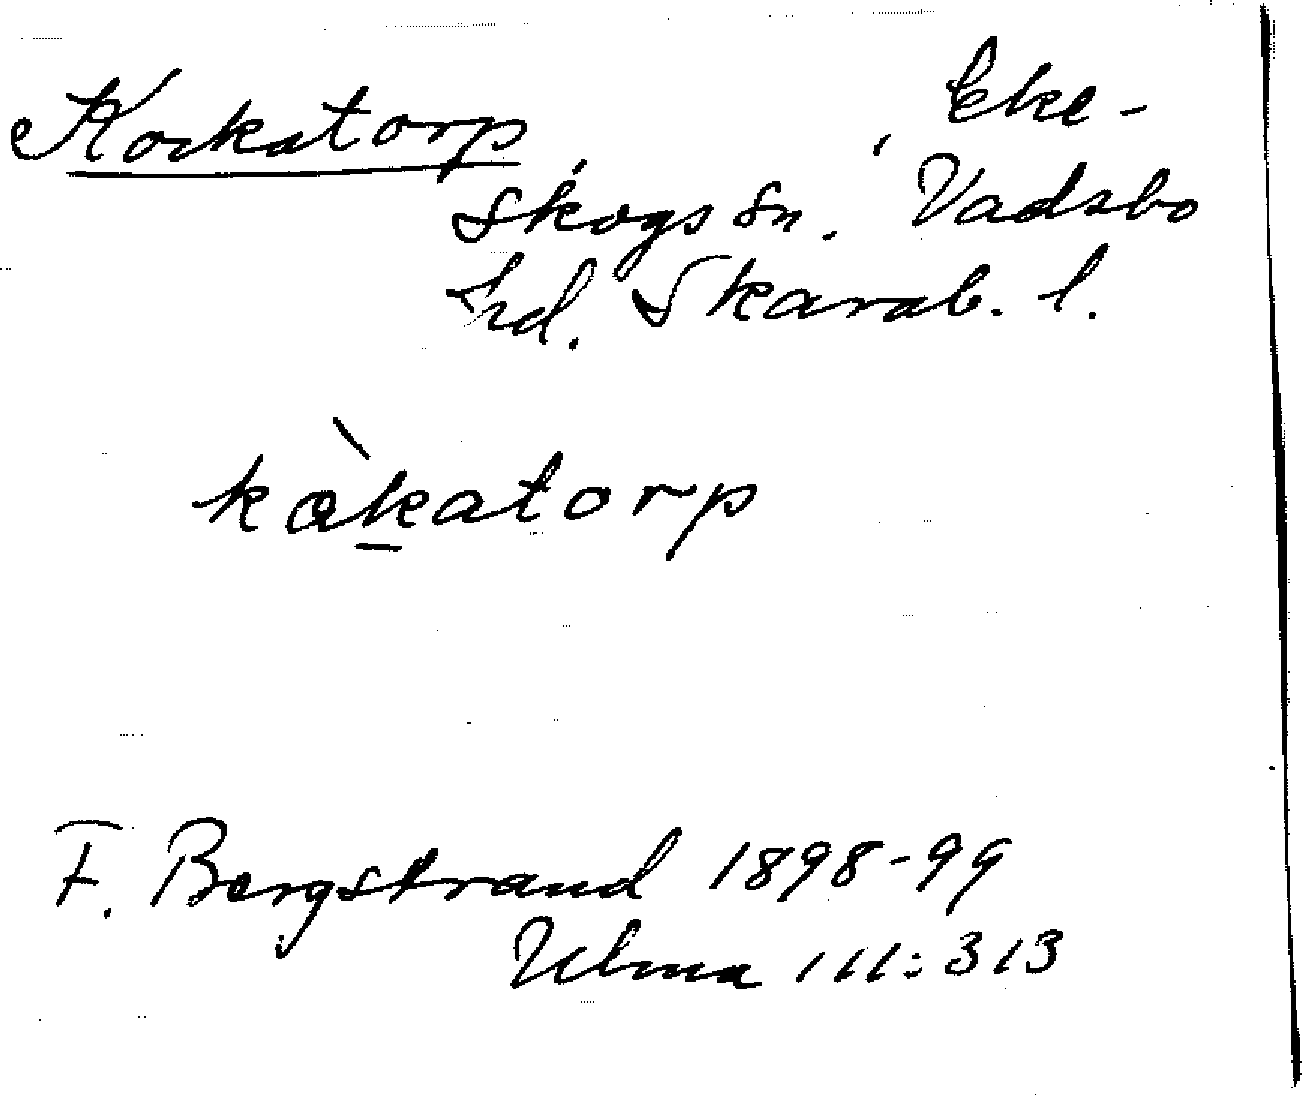 Kockatorp, Eke-
skogs sn. Vadsbo
hd. Skarab. l.
kàkatorp
F. Bergstrand 1898-99
Ulma 111:313